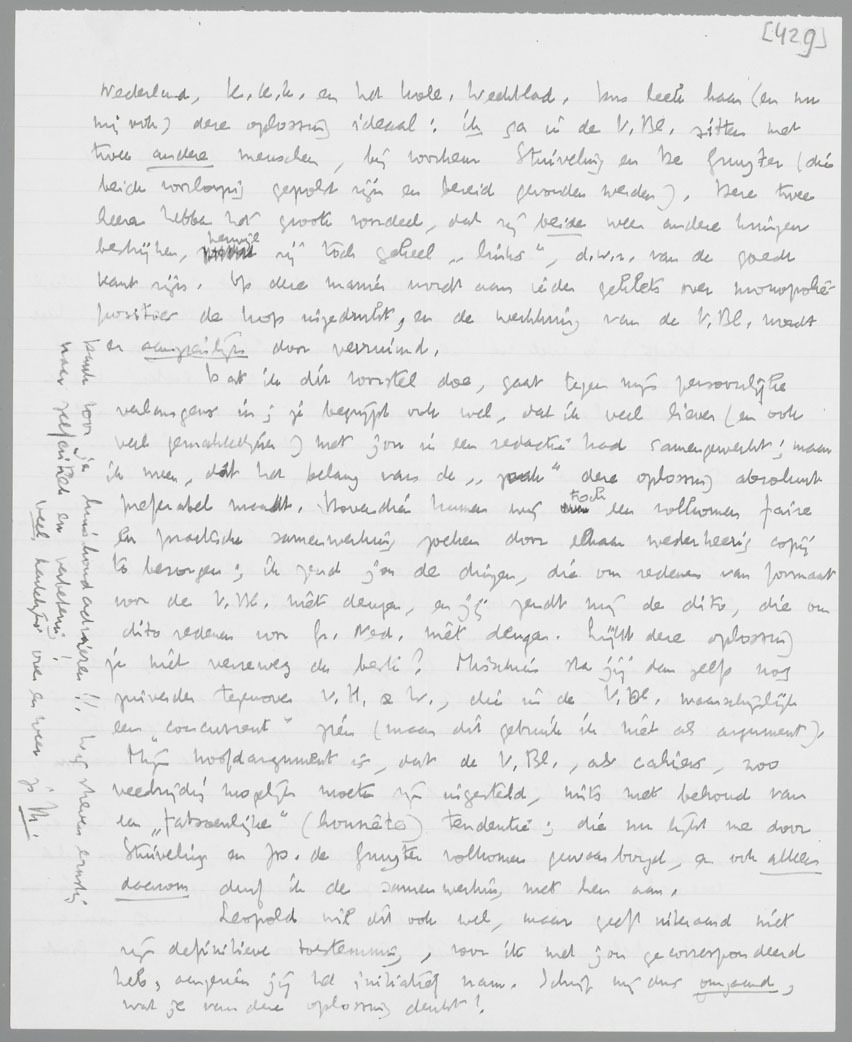 [429]
Nederland, K.K.K. en het Kole. Weekblad. Ons leek haar (en nu
mij ook) deze oplossing ideaal: ik ga in de V.Bl. zitten met
twee andere menschen, bij voorkeur Stuiveling en De Gruyter (die
beide voorloopig gepolst zijn en bereid gevonden werden). Deze twee
heeren hebben het groote voordeel, dat zij beide weer andere kringen
bestrijken, terwijl zij toch geheel „links", d.w.z. van de goede
kant zijn. Op deze manier wordt aan ieder geklets over monopolie-
posities de kop ingedrukt, en de werkkring van de V.Bl. wordt
er aanzienlijk door verruimd.
Dat ik dit voorstel doe, gaat tegen mijn persoonlijke
verlangens in; je begrijpt ook wel, dat ik veel liever (en ook
veel gemakkelijker) met jou in een redactie had samengewerkt; maar
ik meen, dat het belang van de „zaak" deze oplossing absoluut
preferabel maakt. Bovendien kunnen wij toch een volkomen faire
en practische samenwerking zoeken door elkaar wederkeerig copij
te bezorgen; ik zend jou de dingen, die om redenen van formaat
voor de V.Bl. niet deugen, en jij zendt mij de dito, die om
dito redenen voor Gr. Ned. niet deugen. Lijkt deze oplossing
je niet verreweg de beste? Misschien sta jij dan zelfs nog
zuiverder tegenover V.H. & W., die in de V.Bl. waarschijnlijk
een „concurrent" zien (maar dit gebruik ik niet als argument).
Mijn hoofdargument is, dat de V.Bl., als cahiers, zoo
veelzijdig mogelijk moeten zijn ingesteld, mits met behoud van
een „fatsoenlijke" (honnête) tendentie; die nu lijkt me door
Stuiveling en Jos. de Gruyter volkomen gewaarborgd, en ook alleen
daarom durf ik de samenwerking met hen aan.
Leopold wil dit ook wel, maar geeft uiteraard niet
zijn definitieve toestemming, voor ik met jou gecorrespondeerd
heb, aangezien jij het initiatief nam. Schrijf mij dus omgaand,
wat je van deze oplossing denkt!
Dank voor je huishoudadviezen!! Wij streven ernstig
naar zelfcritiek en verbetering!
Veel hartelijks over en weer je M.